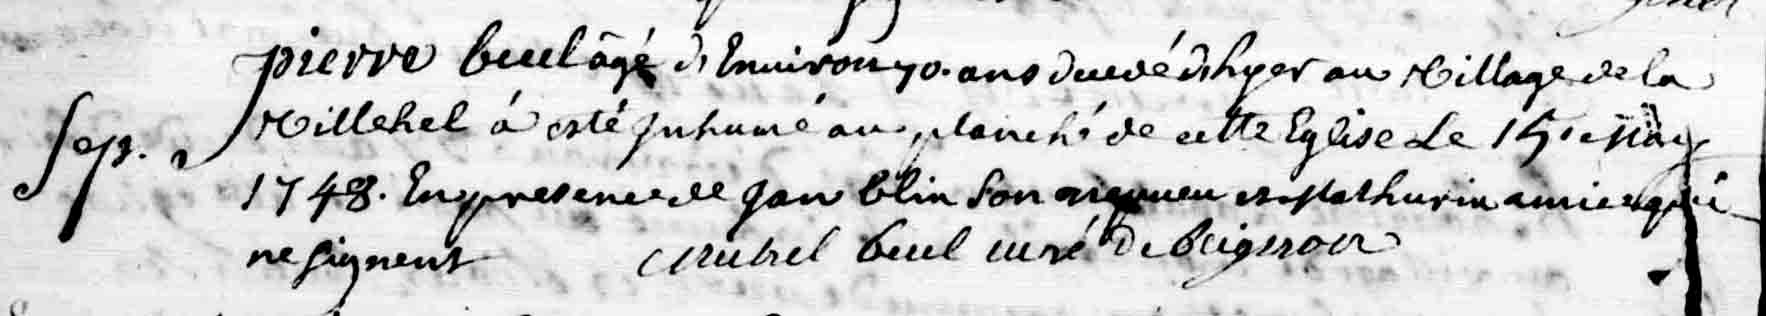 pierre beul âgé d'Environ 70. ans decedé d'hyer au Village de la
Sep. Villehel á esté Inhumé au planché de cette Eglise Le 15e May
1748. En presence de Jan blin son neveu et Mathurin amice qui
ne signent Michel beul curé de beignon